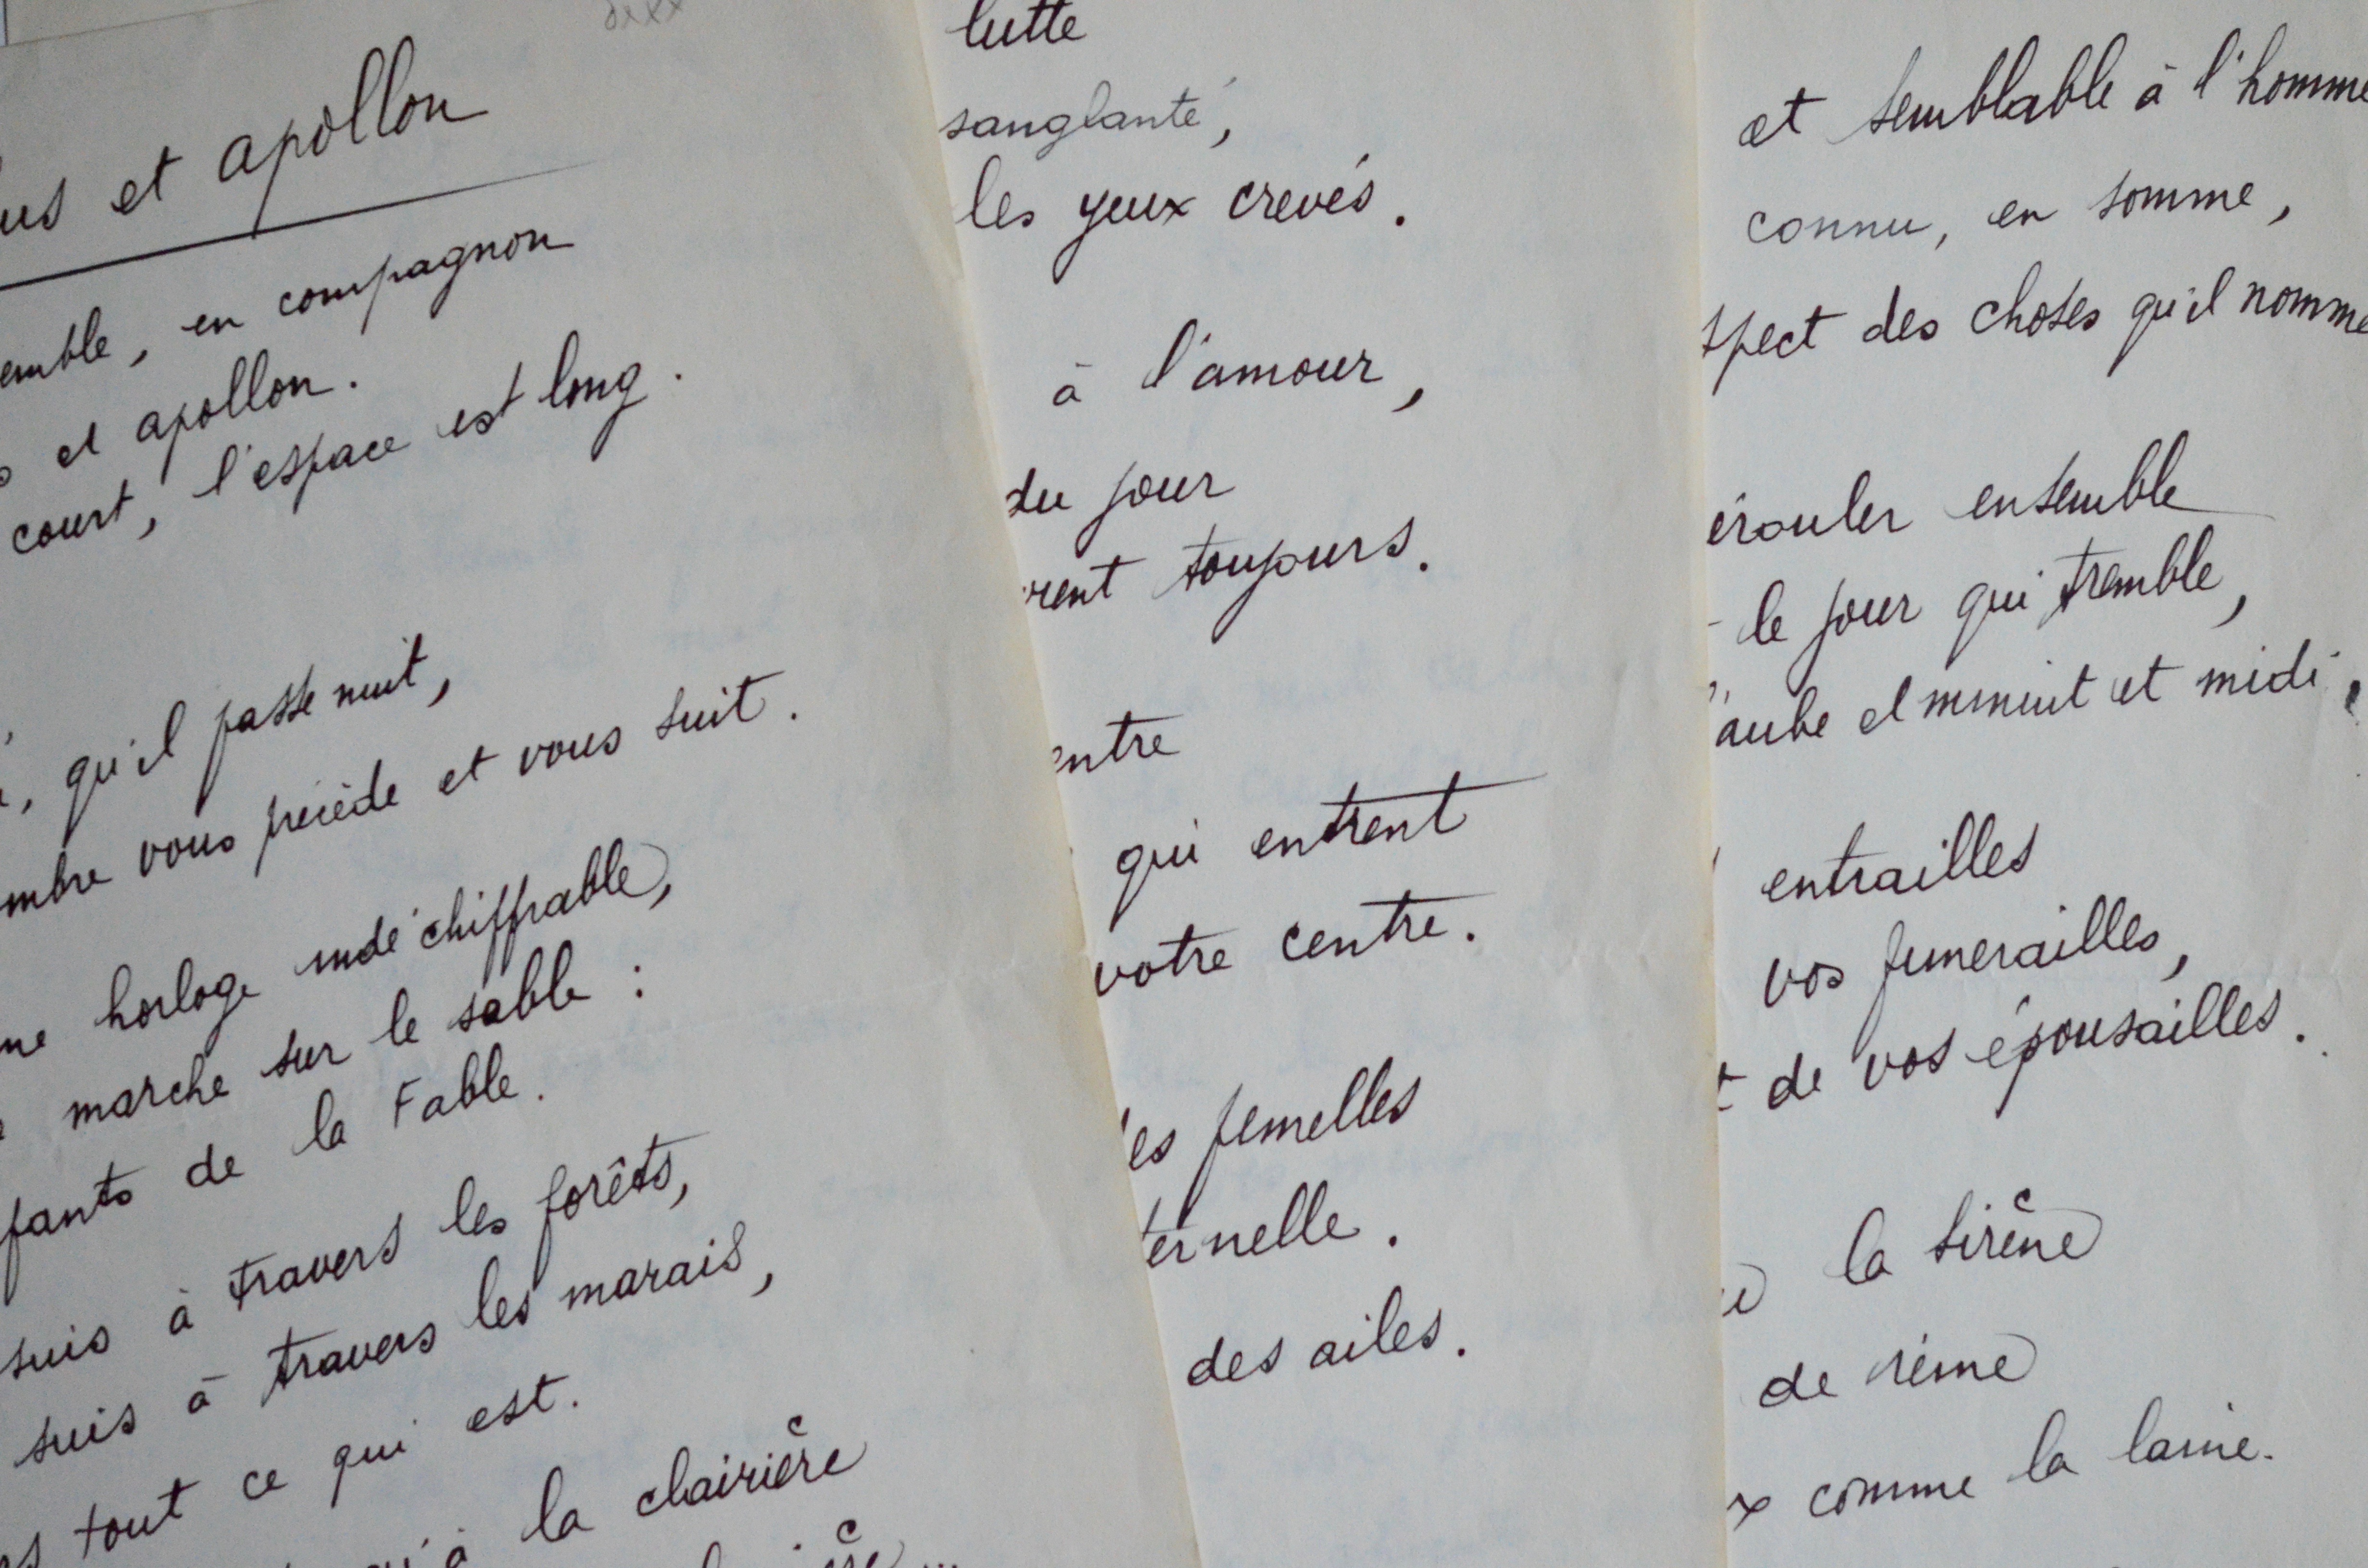 us et apollon
emble, en compagnon
et apollon.
court, l'espace est long.
, qu'il passe nuit,
mbre vous précède et vous suit.
ne horloge indéchiffrable,
marche sur le sable :
fants de la Fable.
suis à travers les forêts,
suis à travers les marais,
tout ce qui est.
à la clairière
lutte
sanglante,
les yeux crevés.
à l'amour,
du jour
rent toujours.
entre
qui entrent
votre centre.
les femelles
ternelle.
des ailes.
et semblable à l'homme
connu, en somme,
spect des choses qu'il nomme
érouler ensemble
le jour qui tremble,
aube et minuit et midi,
entrailles
vos funerailles,
t de vos épousailles.
la sirène
de
x comme la laine.